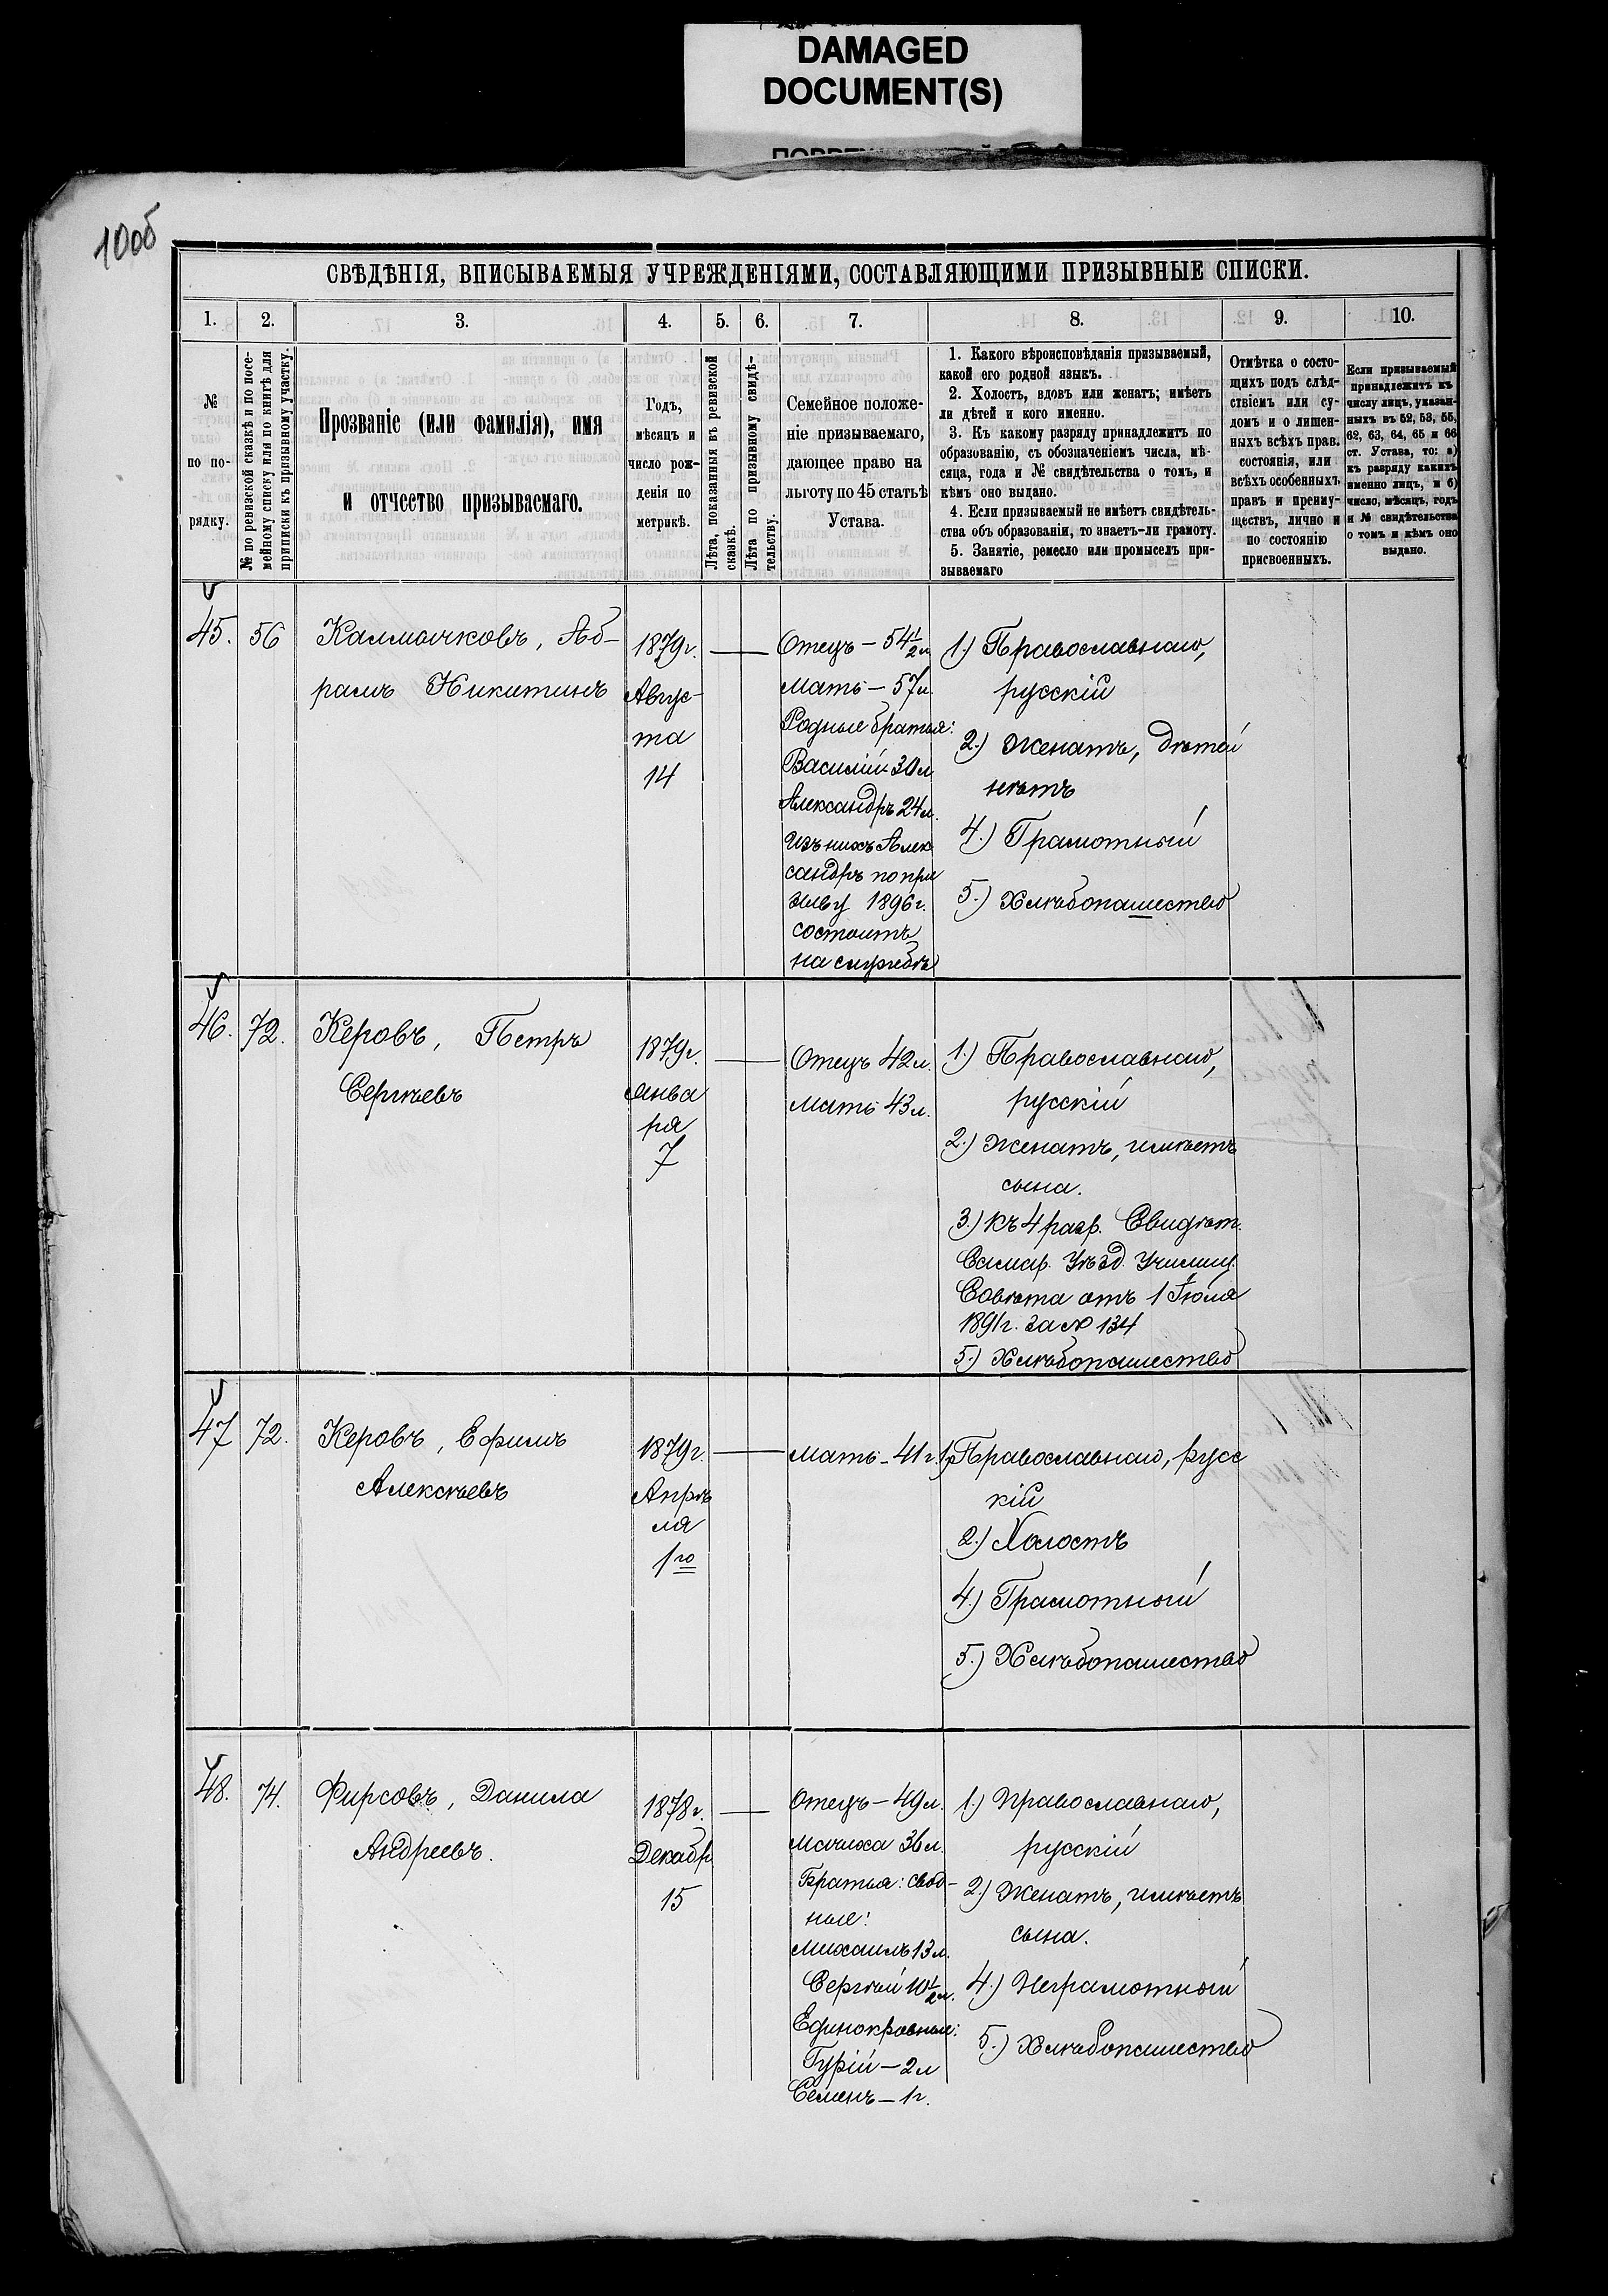 DAMAGED
DOCUMENT(S)
10об
СВѢДѢНІЯ, ВПИСЫВАЕМЫЯ УЧРЕЖДЕНІЯМИ, СОСТАВЛЯЮЩИМИ ПРИЗЫВНЫЕ СПИСКИ.
1. 2. 3. 4. 5. 6. 7. 8. 9. 10.
№
по по-
рядку.
№ по ревизской сказкѣ и по посе-
мейному списку или по книгѣ для
приписки къ призывному участку.
Прозваніе (или фамилія), имя
и отчество призываемаго.
Годъ,
мѣсяцъ и
число рож-
денія по
метрикѣ.
Лѣта, показанныя въ ревизской
сказкѣ.
Лѣта по призывному свидѣ-
тельству.
Семейное положе-
ніе призываемаго,
дающее право на
льготу по 45 статьѣ
Устава.
1. Какого вѣроисповѣданія призываемый,
какой его родной языкъ.
2. Холостъ, вдовъ или женатъ; имѣетъ
ли дѣтей и кого именно.
3. Къ какому разряду принадлежитъ по
образованію, съ обозначеніемъ числа, мѣ-
сяца, года и № свидѣтельства о томъ, и
кѣмъ оно выдано.
4. Если призываемый не имѣетъ свидѣтель-
ства объ образованіи, то знаетъ-ли грамоту.
5. Занятіе, ремесло или промыселъ при-
зываемаго
Отмѣтка о состо-
ящихъ подъ слѣд-
ствіемъ или су-
домъ и о лишен-
ныхъ всѣхъ прав.
состоянія, или
всѣхъ особенныхъ
правъ и преиму-
ществъ, лично и
по состоянію
присвоенныхъ.
Если призываемый
принадлежитъ къ
числу лицъ, указан-
ныхъ въ 52, 53, 55,
62, 63, 64, 65 и 66
ст. Устава, то: а)
къ разряду какихъ
именно лицъ, и б)
число, мѣсяцъ, годъ
и № свидѣтельства
о томъ и кѣмъ оно
выдано.
45. 56
Калмычковъ, Аб-
рамъ Никитинъ
1879 г.
Авгус-
та
14
Отецъ – 54 1/2 л
Мать – 57 л
Родные братья:
Василій 30 л
Александръ 24 л.
Изъ нихъ Алек
сандръ по при
зыву 1896 г.
состоитъ
на службѣ
1.) Православнаго,
русскій
2.) Женатъ, дѣтей
нѣтъ
4.) Грамотный
5.) Хлѣбопашество
46. 72.
Керовъ, Петръ
Сергѣевъ
1879 г.
Янва
ря
7
Отецъ 42 л.
Мать 43 л.
1.) Православнаго,
русскій
2.) Женатъ, имѣетъ
сына.
3.) Къ 4 разр. Свидѣт.
Самар. Уѣзд. Училищ.
Совѣта отъ 1 Іюля
1891 г. за № 134
5.) Хлѣбопашество
47 72.
Керовъ, Ефимъ
Алексѣевъ
1879 г.
Апрѣ
ля
1го
Мать – 41 г.
1) Православнаго, русс
кій
2.) Холостъ
4.) Грамотный
5.) Хлѣбопашество
48. 74.
Фирсовъ, Данила
Андреевъ.
1878 г.
Декабр
15
Отецъ – 49 л.
Мачиха 36 л.
Братья: свод-
ные:
Михаилъ 13 л.
Сергѣй 10 1/2 л.
Единокровные:
Гурій – 2 л
Семенъ – 1 г.
1.) Православнаго,
русскій
2.) Женатъ, имѣетъ
сына.
4.) Неграмотный
5.) Хлѣбопашество